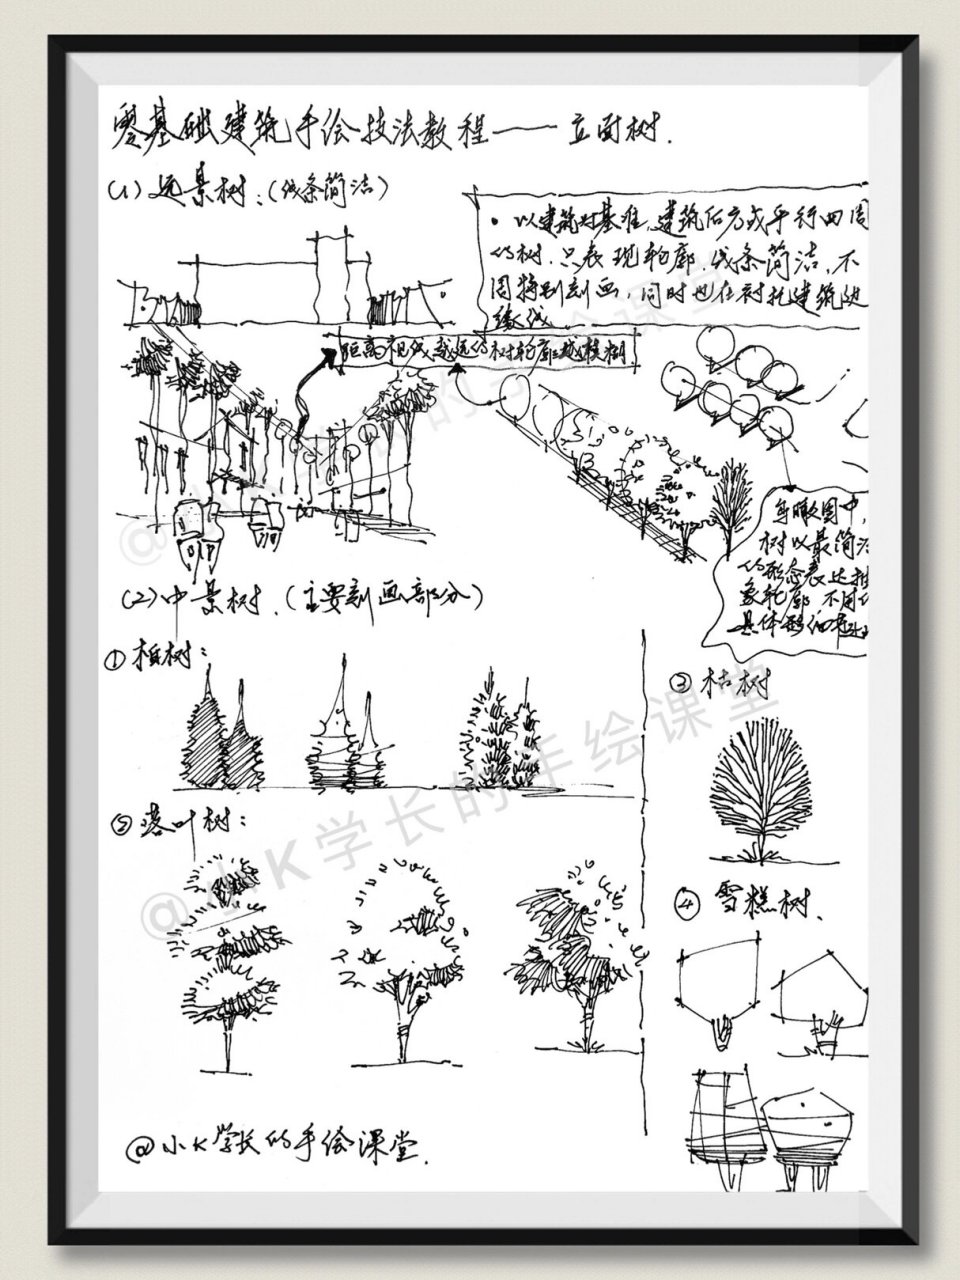 零基础建筑手绘技法教程——立面树.
(1)远景树:(线条简洁)
• 以建筑为基准,建筑后方或平行四周
的树.只表现轮廓.线条简洁,不
用特别刻画,同时也在衬托建筑边
缘线
距离视线越远的树轮廓越模糊.
鸟瞰图中,
树以最简洁
的形态表达
象轮廓 不用
具体
(2)中景树.(主要刻画部分)
①柏树:
③枯树
②落叶树:
④雪糕树.
@小K学长的手绘课堂.
@小K学长的手绘课堂
@小K学长的手绘课堂